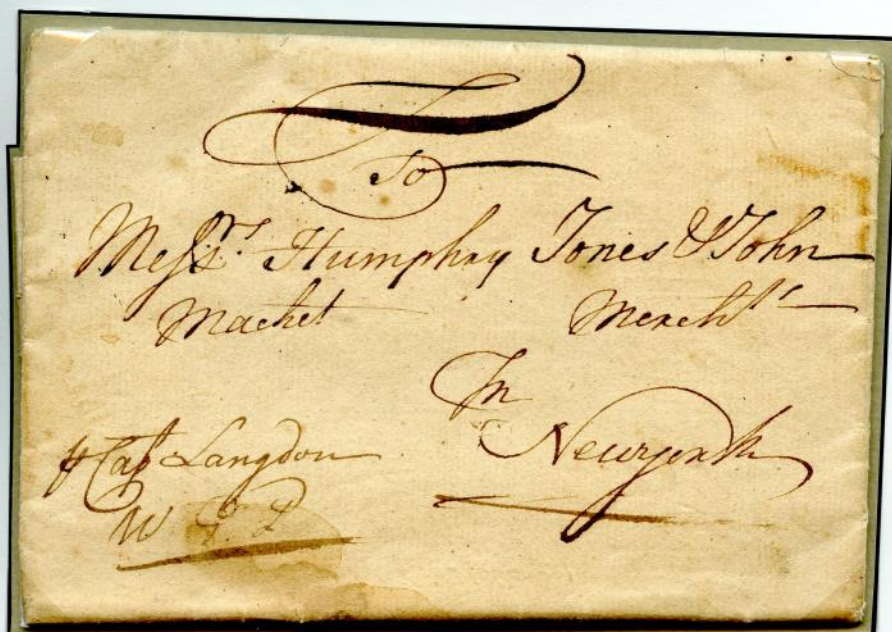 To
Messrs. Humphry Jones & John
Machet Mercht's
In
Newyork
p Capt Langdon
W G P